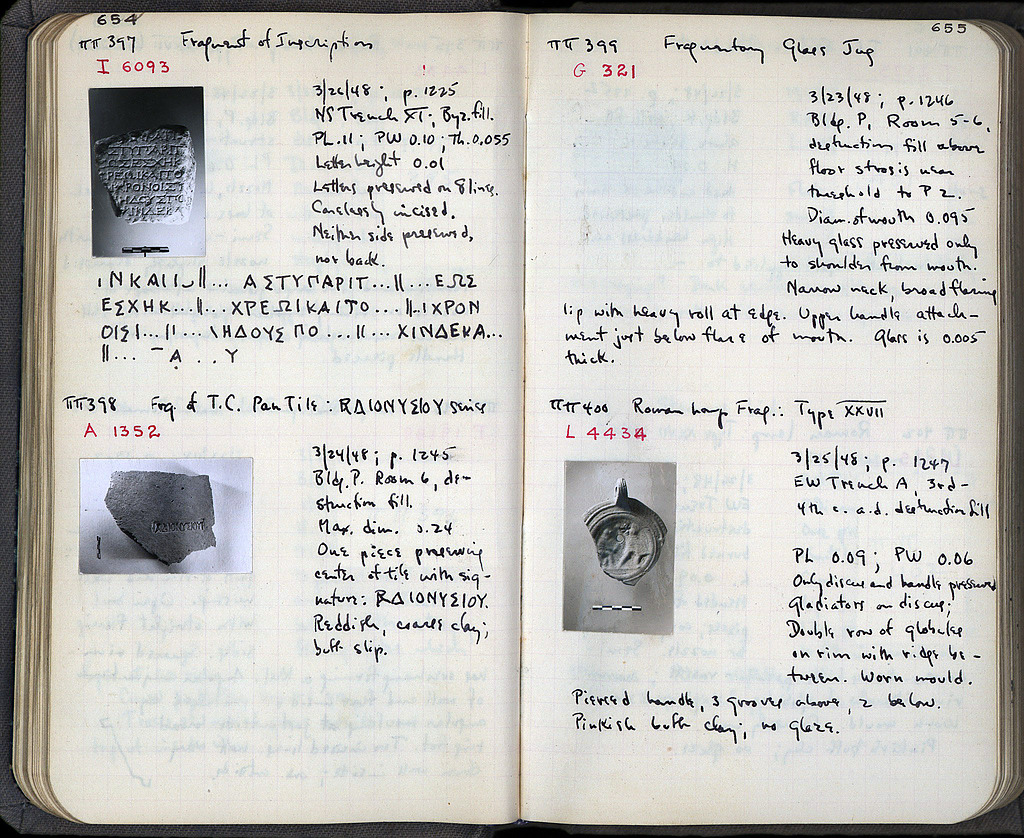 654
ΠΠ 397 Fragment of Inscription
I 6093
3/26/48 ; p. 1225
NS Trench XI ; Byz. fill.
PL. 11 ; PW 0.10 ; Th. 0.055
Letter height 0.01
Letters preserved on 8 lines.
Carelessly incised.
Neither side preserved,
nor back.
ΙΝΚΑΙ ||... ΑΣΤΥΠΑΡΙΤ...||...ΕΩΣ
ΕΣΧΗΚ...||... ΧΡΕΩΙΚΑΙΤΟ....||.ΙΧΡΟΝ
ΟΙΣΙ...||... \ΗΔΟΥΣ ΠΟ....||... ΧΙΝΔΕΚΑ...
||... Α . . Υ
ΠΠ 398 Frg. of T.C. Pan Tile : ΔΙΟΝΥΣΙΟΥ series
A 1352
3/24/48 ; p. 1245
Bldg. P. Room 6, de-
struction fill.
Max. dim. 0.24
One piece preserving
center of tile with sig-
nature: ΔΙΟΝΥΣΙΟΥ.
Reddish, coarse clay;
buff slip.
655
ΠΠ 399 Fragmentary Glass Jug
G 321
3/23/48 ; p. 1246
Bldg. P, Room 5-6,
destruction fill above
floor strosis near
threshold to P 2.
Diam. of mouth 0.095
Heavy glass preserved only
to shoulder from mouth.
Narrow neck, broad flaring
lip with heavy roll at edge. Upper handle attach-
ment just below flare of mouth. Glass is 0.005
thick.
ΠΠ 400 Roman Lamp Frag.: Type XXVII
L 4434
3/25/48 ; p. 1247
EW Trench A, 3rd-
4th c. a.d. destruction fill
PL 0.09 ; PW 0.06
Only discus and handle preserved
Gladiators on discus;
Double row of globules
on rim with ridge be-
tween. Worn mould.
Pierced handle, 3 grooves above, 2 below.
Pinkish buff clay; no glaze.